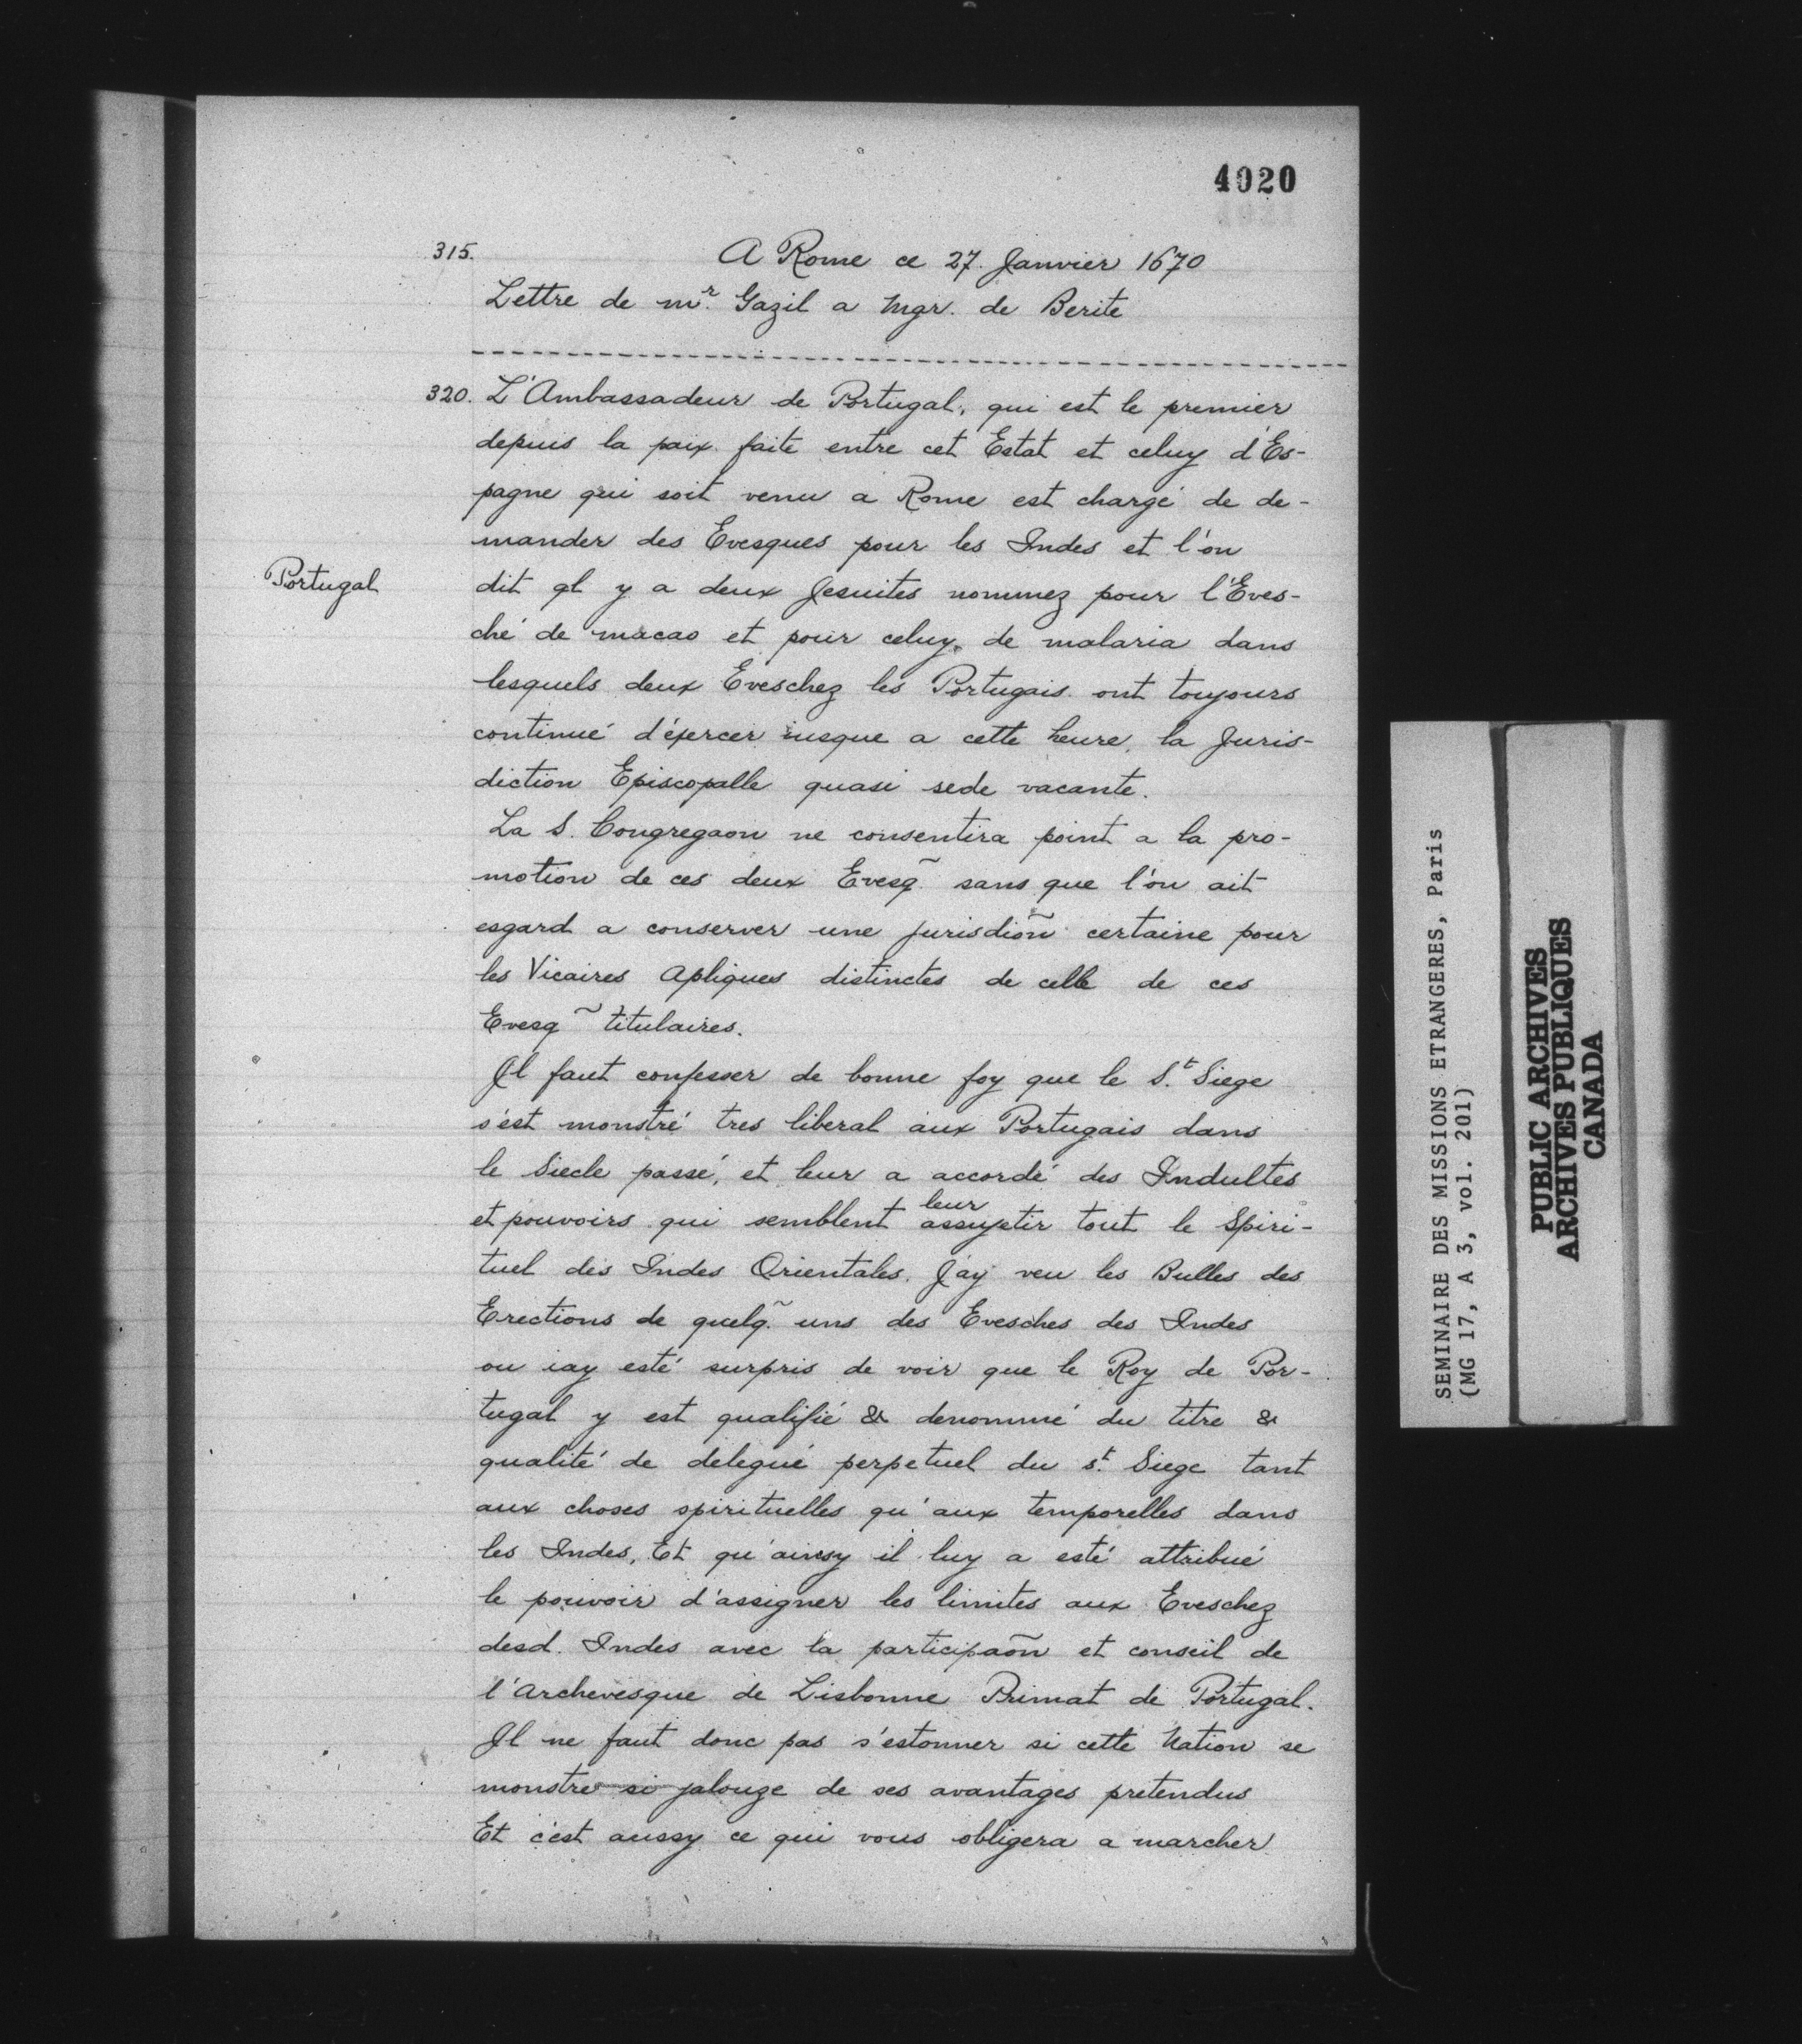 4020
315. A Rome ce 27. Janvier 1670
Lettre de mr. Gazil a Mgr. de Berite
320. L'Ambassadeur de Portugal, qui est le premier
depuis la paix faite entre cet Estat et celuy d'Es-
pagne qui soit venu a Rome est chargé de de-
mander des Evesques pour les Indes et l'on
Portugal
dit ql y a deux Jesuites nommez pour l'Eves-
ché de macao et pour celuy de malaria dans
lesquels deux Eveschez les Portugais ont toujours
continué d'éxercer iusque a cette heure, la Juris-
diction Episcopalle quasi sede vacante.
La S. Congregaon ne consentira point a la pro-
motion de ces deux Evesq̃ sans que l'on ait
esgard a conserver une jurisdiõn certaine pour
les Vicaires Apliques distinctes de celle de ces
Evesq̃ titulaires.
Il faut confesser de bonne foy que le S.t Siege
s'est monstré tres liberal aux Portugais dans
le Siecle passé, et leur a accordé des Indultes
et pouvoirs qui semblent leur assujetir tout le Spiri-
tuel des Indes Orientales. J'ay veu les Bulles des
Erections de quelq̃ uns des Evesches des Indes
ou iay esté surpris de voir que le Roy de Por-
tugal y est qualifié & denommé du titre &
qualité de delegué perpetuel du st. Siege tant
aux choses spirituelles qu'aux temporelles dans
les Indes, Et qu'ainsy il luy a esté attribué
le pouvoir d'assigner les limites aux Eveschez
desd. Indes avec la participaõn et conseil de
l'Archevesque de Lisbonne Primat de Portugal.
Il ne faut donc pas s'estonner si cette Nation se
monstre si jalouze de ses avantages pretendus
Et c'est aussy ce qui vous obligera a marcher
SEMINAIRE DES MISSIONS ETRANGERES, Paris
(MG 17, A 3, vol. 201)
PUBLIC ARCHIVES
ARCHIVES PUBLIQUES
CANADA